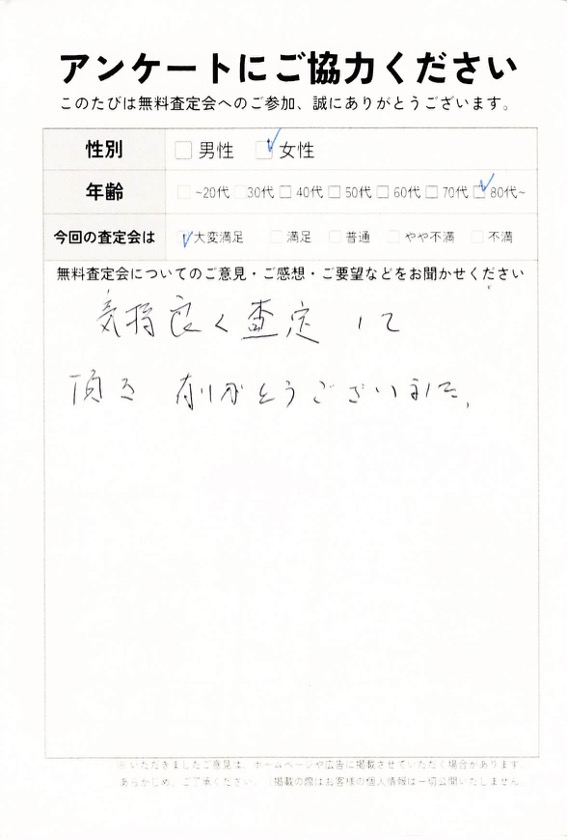 アンケートにご協力ください
このたびは無料査定会へのご参加、誠にありがとうございます。
性別 □ 男性 ☑ 女性
年齢 □ ~20代 □ 30代 □ 40代 □ 50代 □ 60代 □ 70代 ☑ 80代~
今回の査定会は ☑ 大変満足 □ 満足 □ 普通 □ やや不満 □ 不満
無料査定会についてのご意見・ご感想・ご要望などをお聞かせください
気持良く査定して
頂き有りがとうございました。
※いただきましたご意見は、ホームページや広告に掲載させていただく場合があります。
あらかじめ、ご了承ください。 掲載の際はお客様の個人情報は一切公開いたしません。